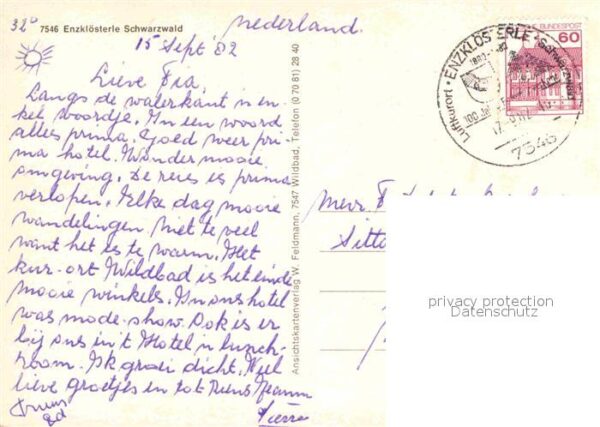 32°
7546 Enzklösterle Schwarzwald
nederland.
15 Sept '82
Lieve Fia,
Langs de waterkant 'n en-
kel woordje. In een woord
alles prima. Goed weer pri
ma hotel. Wonder mooie
omgeving. De reis is prima
verlopen. Elke dag mooie
wandelingen niet te veel
want het is te warm. Het
kur-ort Wildbad is het einde
mooie winkels. In ons hotel
was mode-show. Ook is er
bij ons in 't Hotel 'n lunch-
room. Ik groei dicht. Veel
lieve groetjes en tot
Pierre
Ansichtskartenverlag W. Feldmann, 7547 Wildbad, Telefon (0 70 81) 28 40
Luftkurort · ENZKLÖSTERLE · Schwarzwald
7546
BUNDESPOST
60
Mevr. F
Sitta
privacy protection
Datenschutz